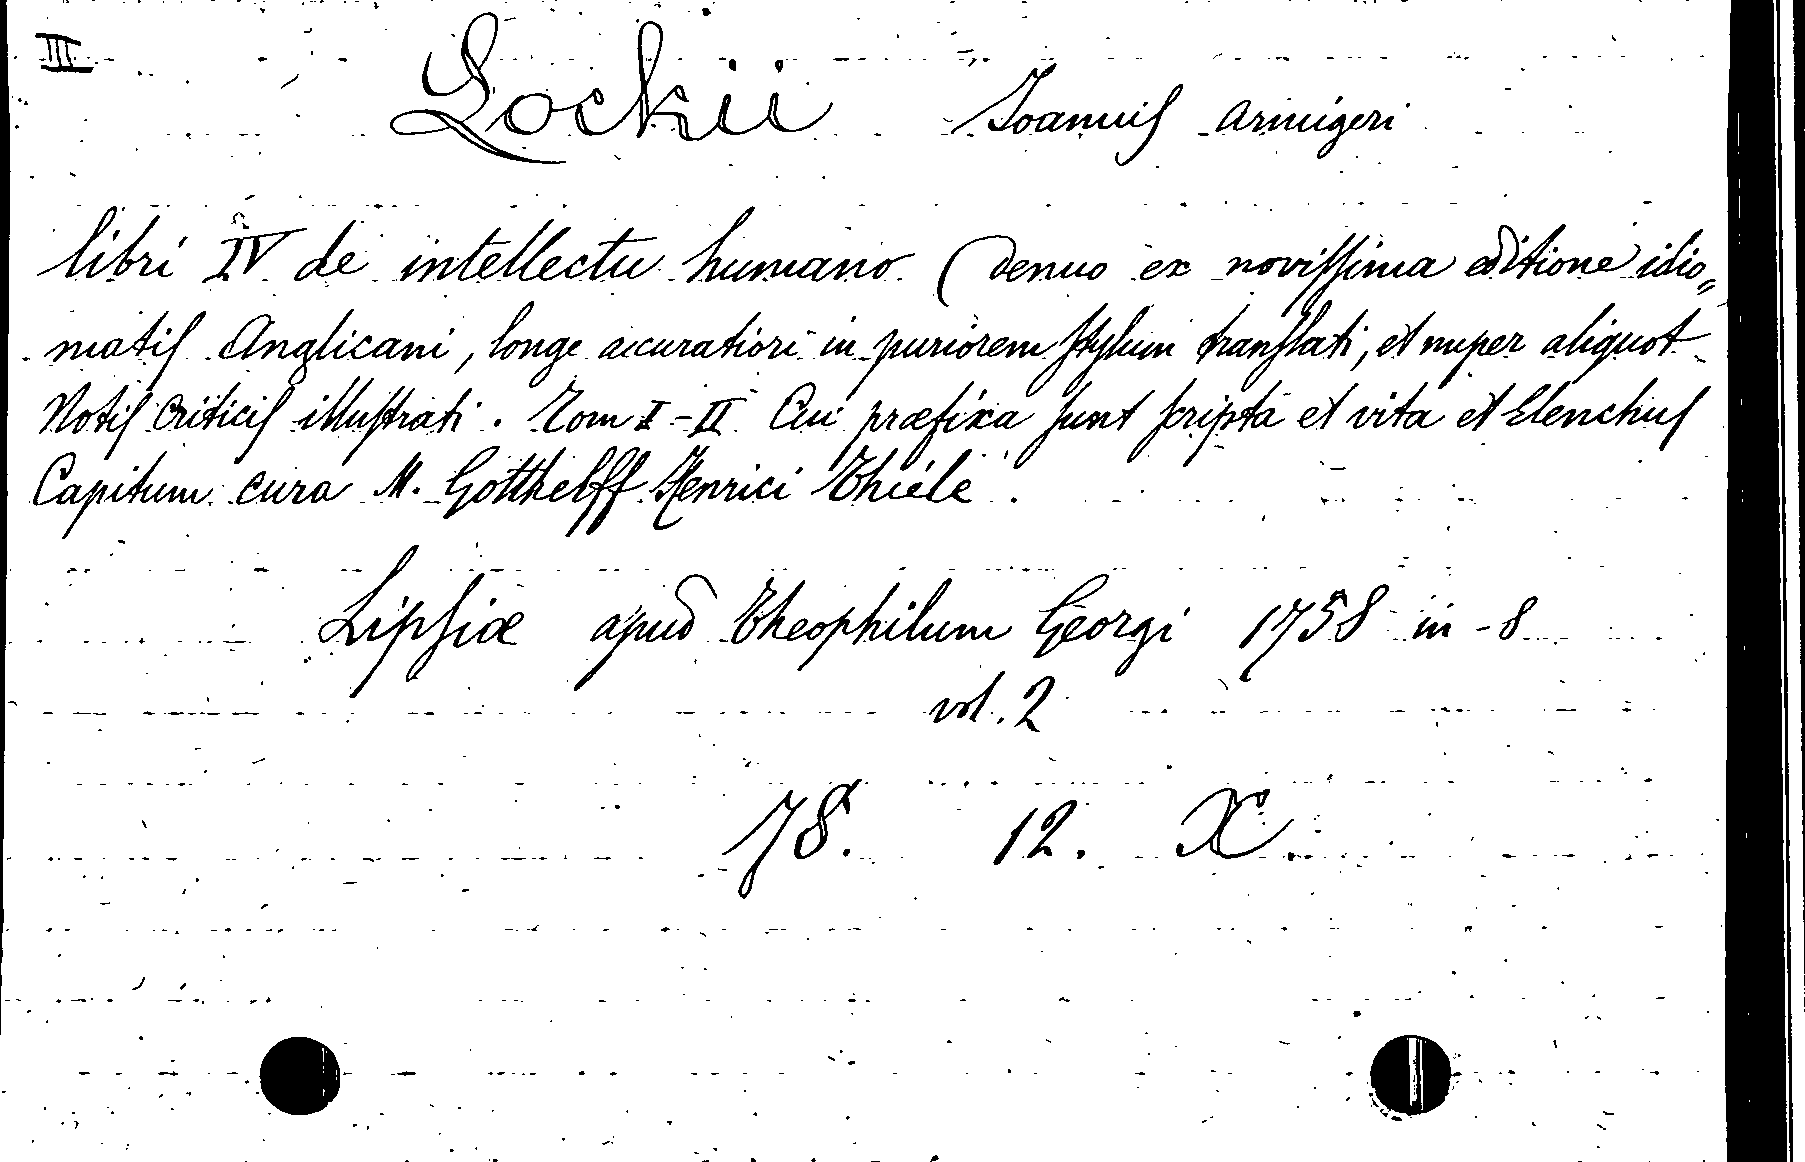 III
Lockii Ioannis Armigeri
libri IV de intellectu humano (denuo ex novissima editione idio„
matis Anglicani, longe accuratiori in puriorem stylum translati, et nuper aliquot
Notis Criticis illustrati. Tom I-II Cui præfixa sunt scripta et vita et Elenchus
Capitum cura M. Gotthelff Henrici Thiele.
Lipsiæ apud Theophilum Georgi 1758 in-8
vol. 2
78. 12. X